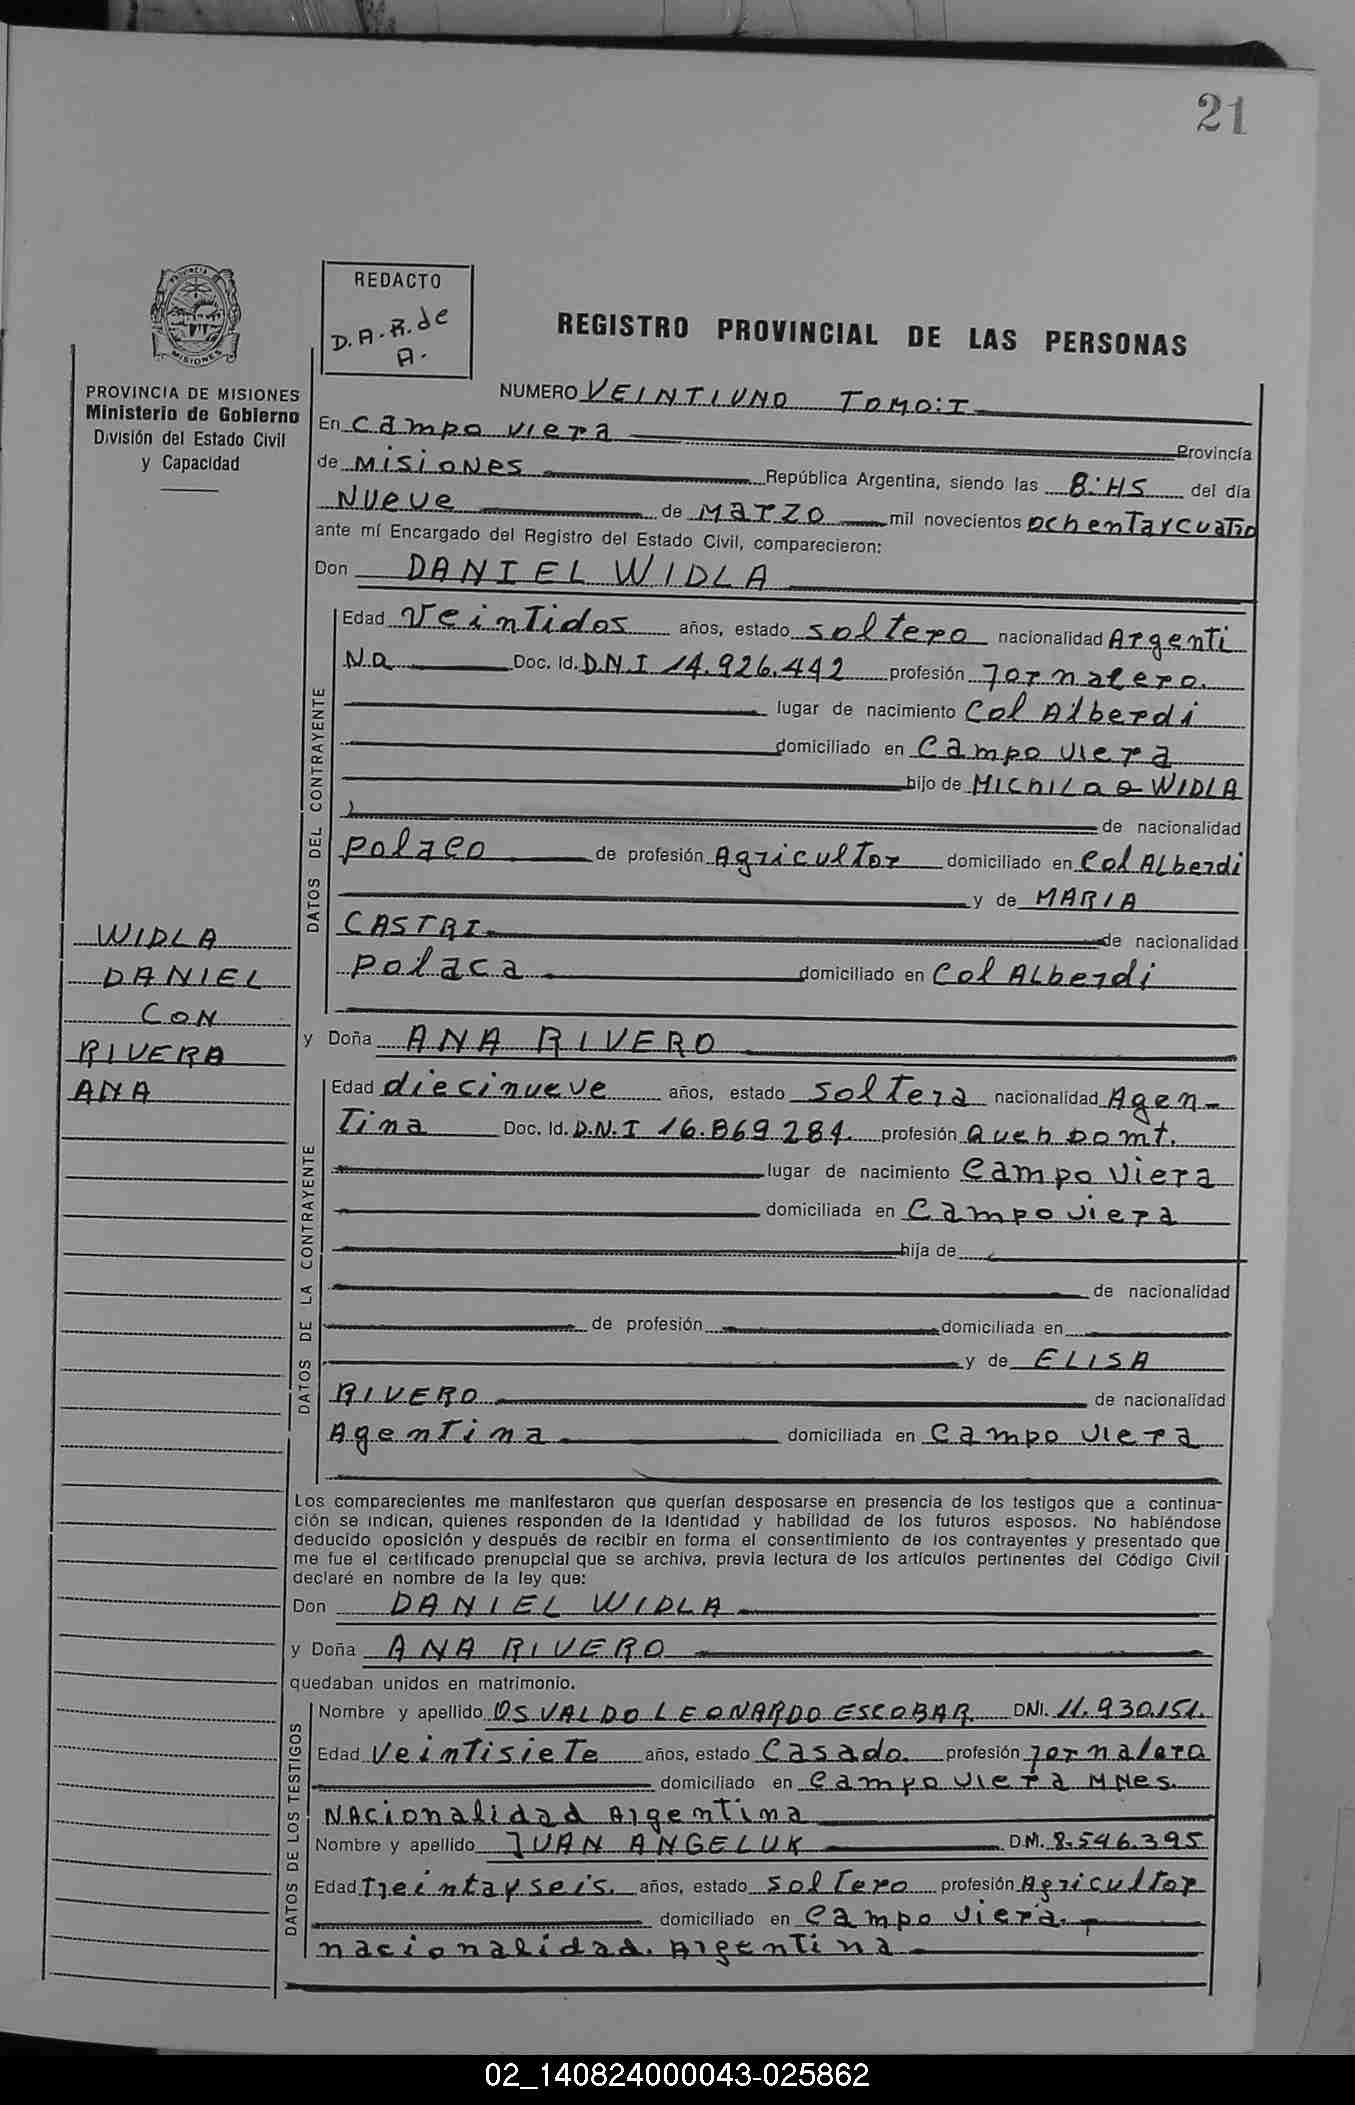 21
REDACTO
D.A.R. de
A.
REGISTRO PROVINCIAL DE LAS PERSONAS
PROVINCIA DE MISIONES
Ministerio de Gobierno
División del Estado Civil
y Capacidad
NUMERO VEINTIUNO TOMO: I
En campo viera Provincia
de Misiones República Argentina, siendo las 8:HS del día
Nueve de Marzo mil novecientos ochentaycuatro
ante mí Encargado del Registro del Estado Civil, comparecieron:
Don DANIEL WIDLA
DATOS DEL CONTRAYENTE
Edad Veintidos años, estado soltero nacionalidad Argenti
No Doc. Id. D.N.I 14.926.442 profesión Jornalero.
lugar de nacimiento Col Alberdi
domiciliado en Campo viera
hijo de WIDLA
de nacionalidad
polaco de profesión Agricultor domiciliado en Col ALberdi
y de MARIA
CASTRI de nacionalidad
polaca domiciliado en Col ALberdi
WIDLA
DANIEL
CON
RIVERA
ANA
y Doña ANA RIVERO
DATOS DE LA CONTRAYENTE
Edad diecinueve años, estado soltera nacionalidad Agen-
Tina Doc. Id. D.N.I 16.869.284. profesión Queh Domt.
lugar de nacimiento Campo Viera
domiciliada en Campo viera
hija de
de nacionalidad
de profesión domiciliada en
y de ELISA
RIVERO de nacionalidad
Agentina domiciliada en Campo viera
Los comparecientes me manifestaron que querían desposarse en presencia de los testigos que a continua-
ción se indican, quienes responden de la identidad y habilidad de los futuros esposos. No habiéndose
deducido oposición y después de recibir en forma el consentimiento de los contrayentes y presentado que
me fue el certificado prenupcial que se archiva, previa lectura de los artículos pertinentes del Código Civil
declaré en nombre de la ley que:
Don DANIEL WIDLA
y Doña ANA RIVERO
quedaban unidos en matrimonio.
DATOS DE LOS TESTIGOS
Nombre y apellido OSVALDO LEONARDO ESCOBAR. DNI. 11.930.151.
Edad Veintisiete años, estado Casado. profesión Jornalero
domiciliado en Campo viera MNes.
NAcionalidad Argentina
Nombre y apellido JUAN ANGELUK D.M. 8.546.395
Edad Treintayseis. años, estado soltero profesión Agricultor
domiciliado en Campo viera.
nacionalidad. Argentina
02_140824000043-025862